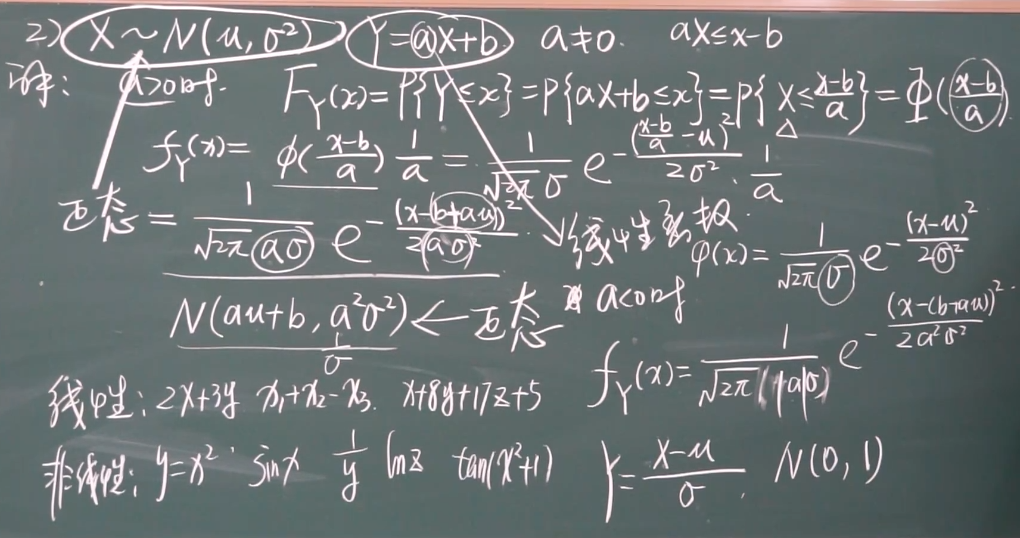 2) X~N(μ,σ²) Y=aX+b a≠0. aX≤x-b
解: a>0时. F_Y(x)=P{Y≤x}=P{aX+b≤x}=P{X≤(x-b)/a}=Φ((x-b)/a)
f_Y(x)=φ((x-b)/a) 1/a = 1/(√2π σ) e^(-((x-b)/a-μ)²/2σ²) · 1/a
正态 = 1/(√2π (aσ)) e^(-(x-(b+aμ))²/2(aσ)²)
线性函数.
φ(x)= 1/(√2π σ) e^(-(x-μ)²/2σ²)
N(aμ+b, a²σ²) ← 正态
1/σ
a<0时
f_Y(x)= 1/(√2π |a|σ) e^(-(x-(b+aμ))²/2a²σ²)
线性: 2x+3y x₁+x₂-x₃. x+8y+17z+5
非线性: y=x² sinx 1/y lnz tan(x²+1)
Y=(X-μ)/σ. N(0,1)